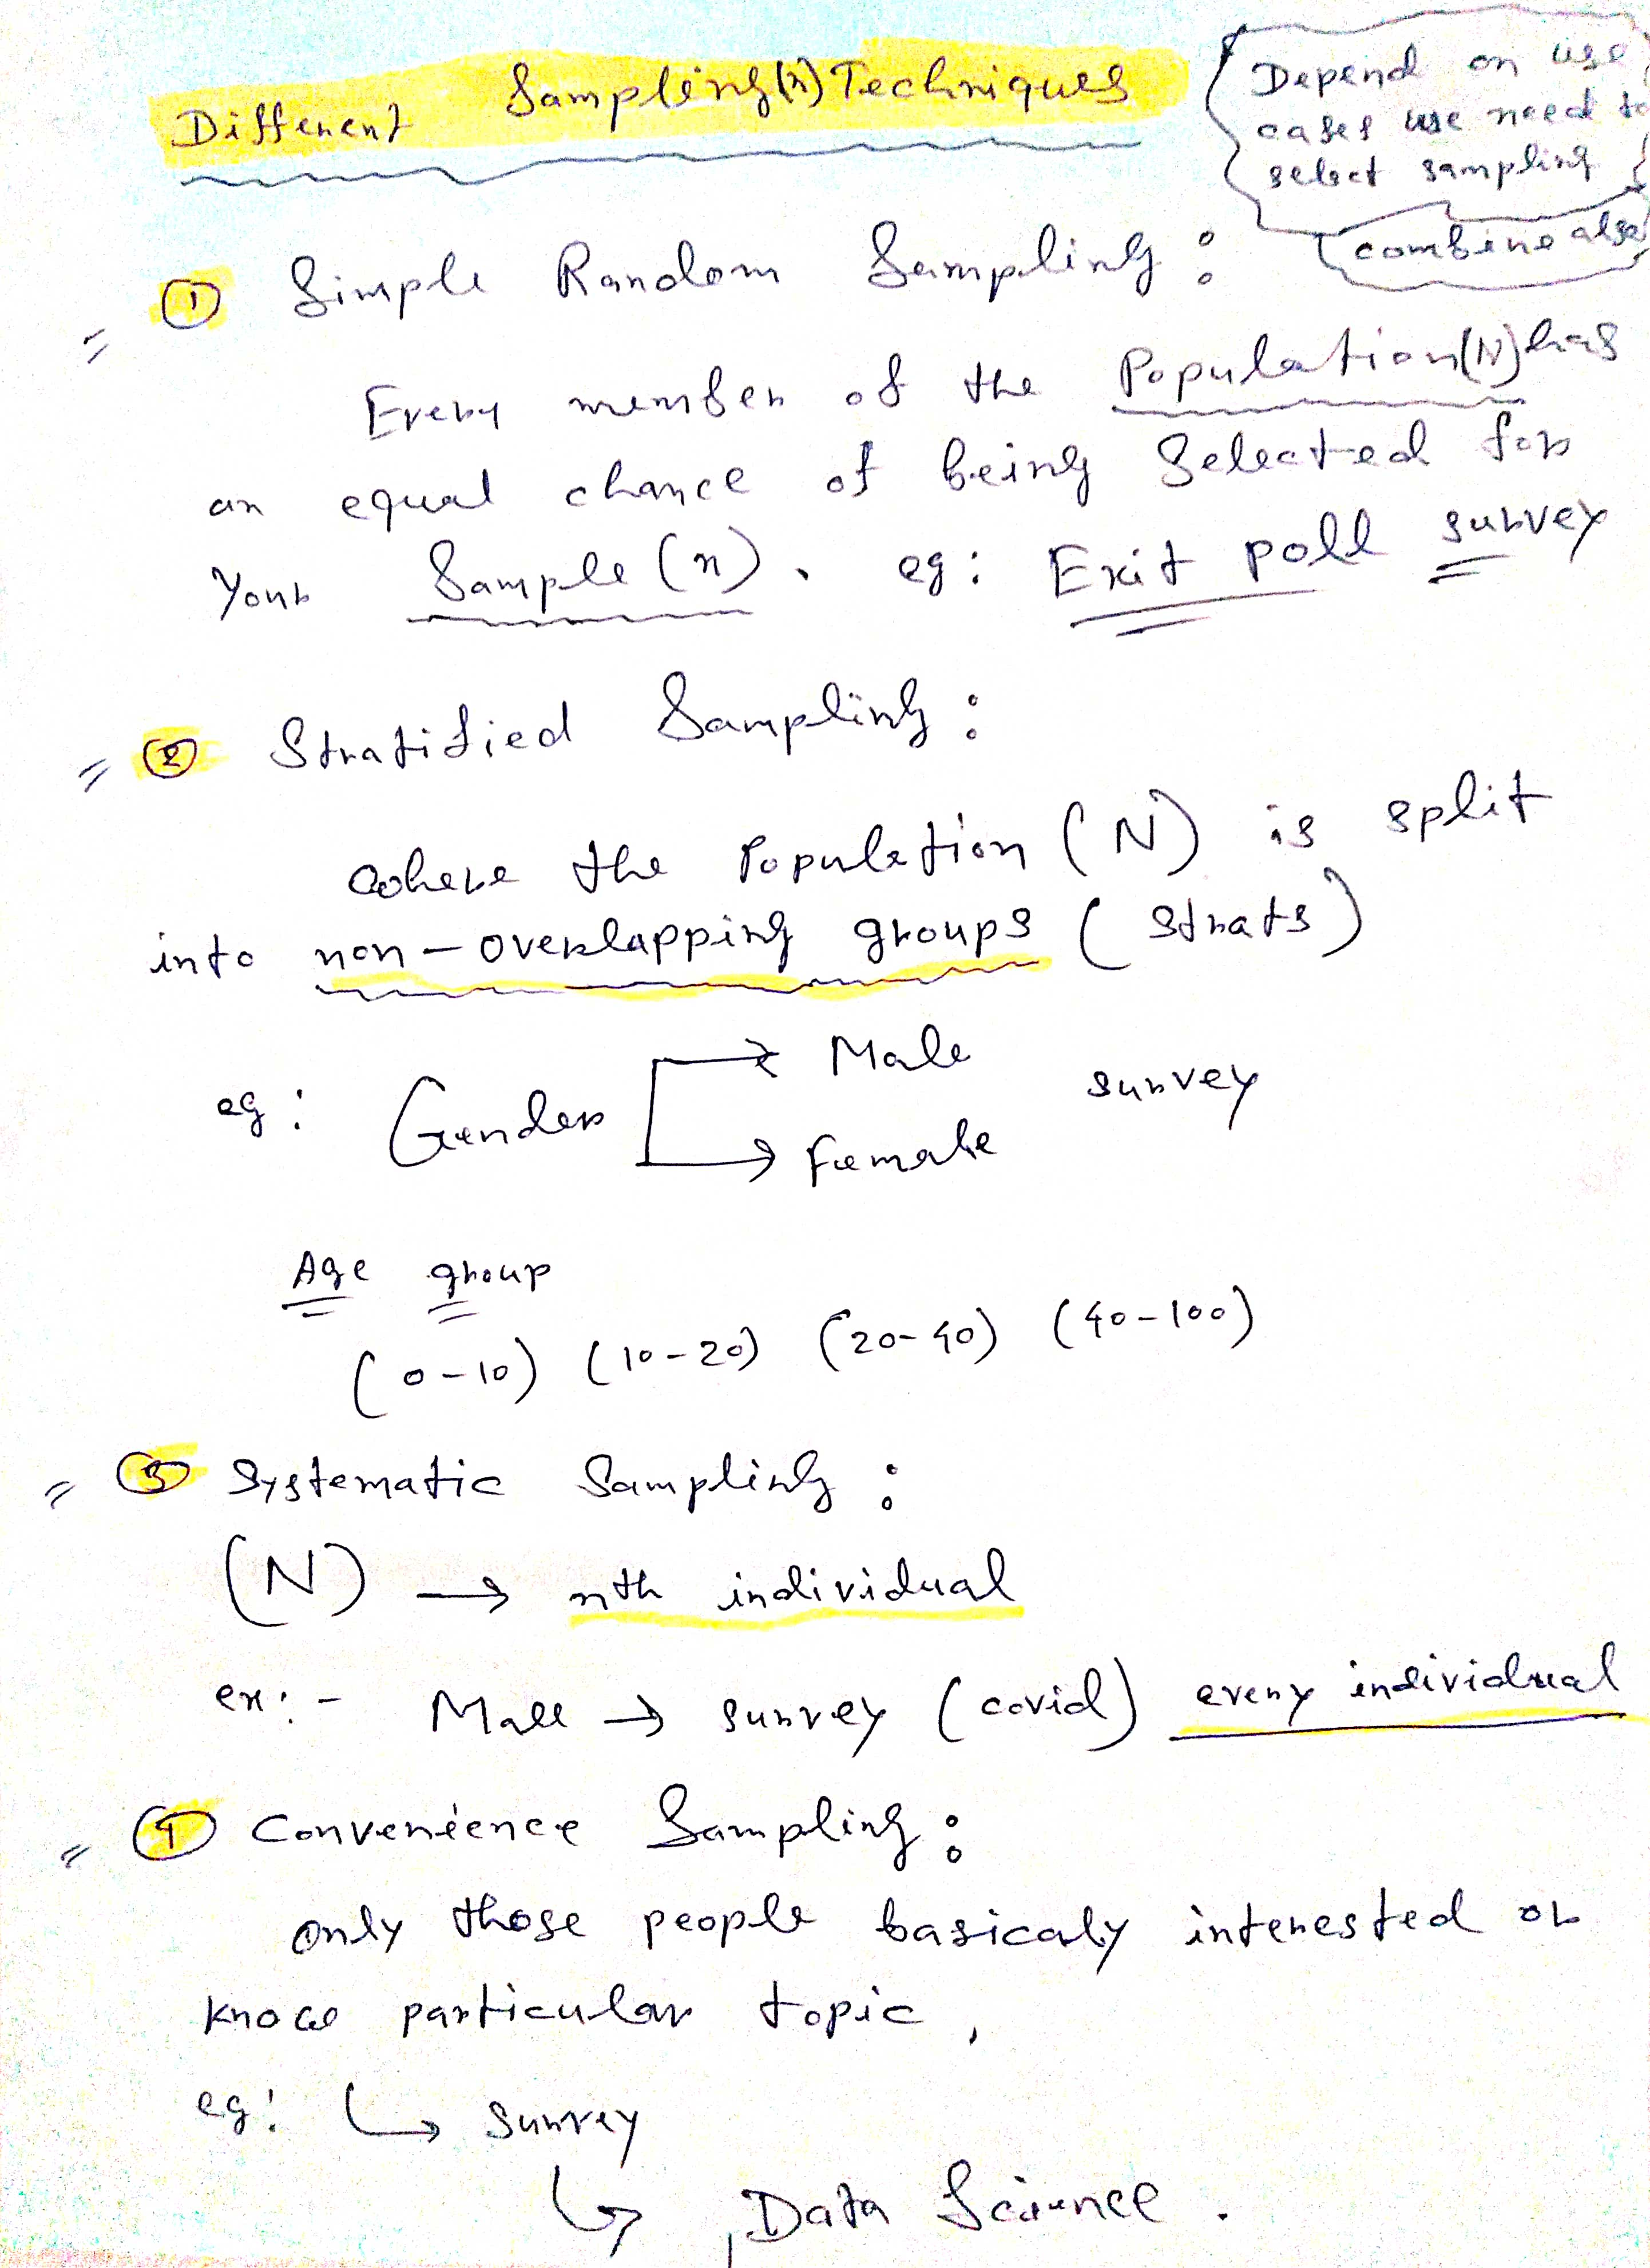 Different Sampling(n) Techniques
Depend on use
cases we need to
select sampling
combine also
① Simple Random Sampling :
Every member of the Population(N) has
an equal chance of being Selected for
Your Sample (n). eg: Exit poll survey
② Stratified Sampling :
where the Population (N) is split
into non-overlapping groups (strats)
eg: Gender → Male survey
→ Female
Age group
(0-10) (10-20) (20-40) (40-100)
③ Systematic Sampling :
(N) → nth individual
ex:- Mall → survey (covid) every individual
④ Convenience Sampling :
only those people basicaly interested or
know particular topic,
eg: ↳ survey
↳ Data Science.